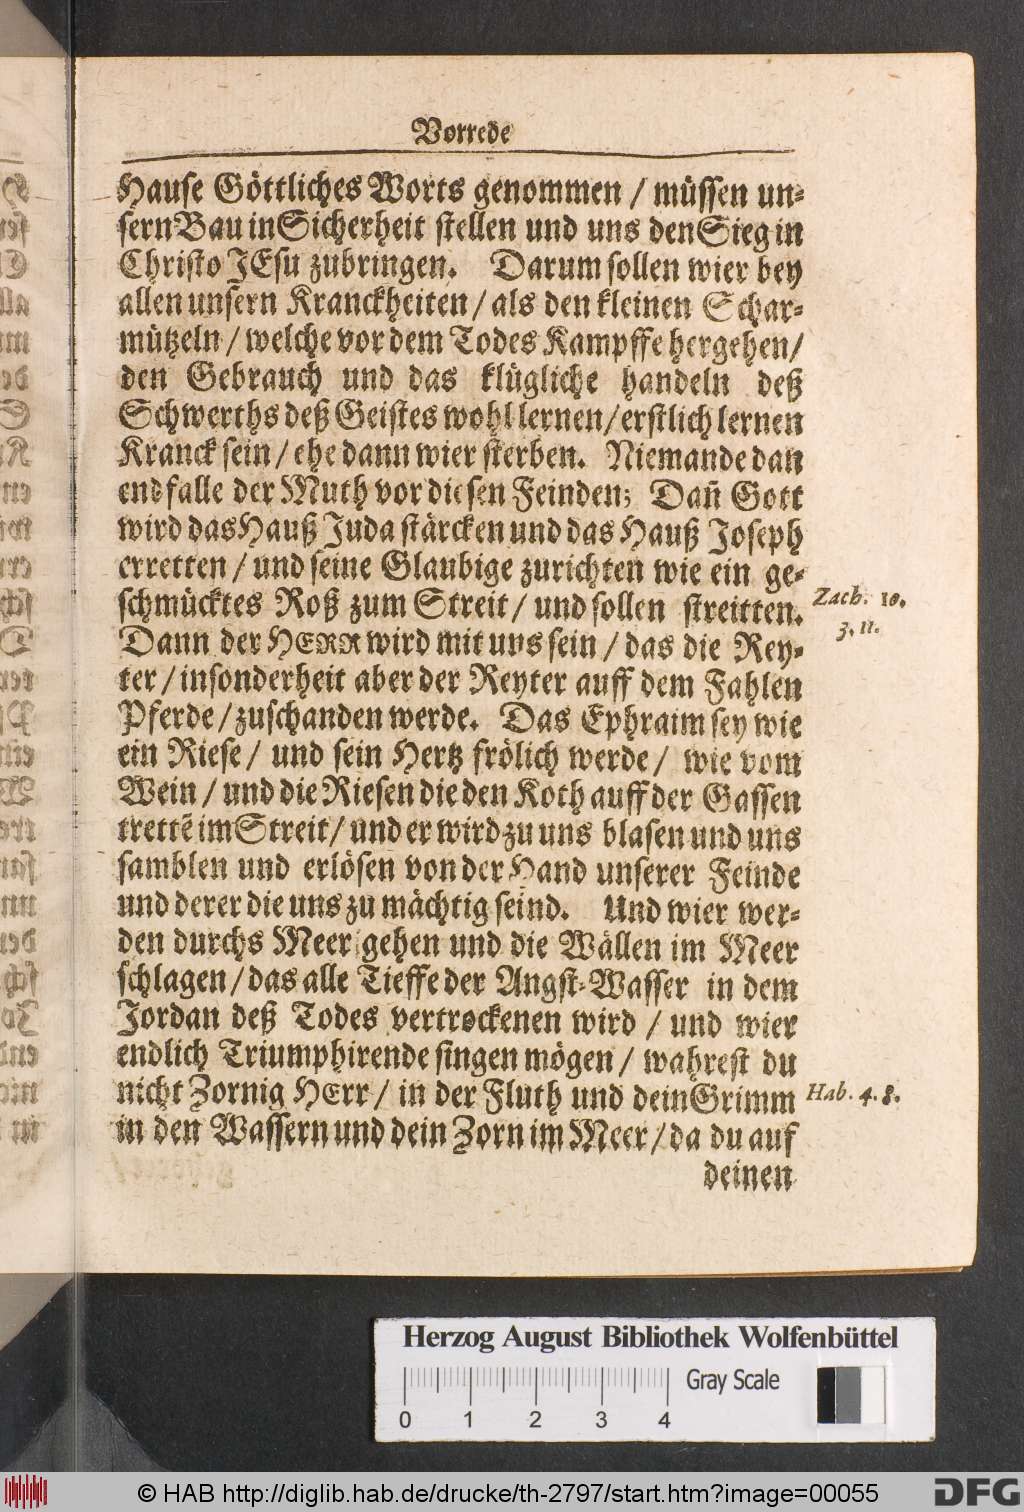 Vorrede
Hause Göttliches Worts genommen / müssen un-
sern Bau in Sicherheit stellen und uns den Sieg in
Christo JEsu zubringen. Darum sollen wier bey
allen unsern Kranckheiten / als den kleinen Schar-
mützeln / welche vor dem Todes Kampffe hergehen /
den Gebrauch und das klügliche handeln deß
Schwerths deß Geistes wohl lernen / erstlich lernen
Kranck sein / ehe dann wier sterben. Niemande dan
endfalle der Muth vor diesen Feinden; Dañ Gott
wird das Hauß Juda stärcken und das Hauß Joseph
erretten / und seine Glaubige zurichten wie ein ge-
schmücktes Roß zum Streit / und sollen streitten.
Zach. 10.
3. 11.
Dann der HERR wird mit uns sein / das die Rey-
ter / insonderheit aber der Reyter auff dem Fahlen
Pferde / zuschanden werde. Das Ephraim sey wie
ein Riese / und sein Hertz frölich werde / wie vom
Wein / und die Riesen die den Koth auff der Gassen
trettē im Streit / und er wird zu uns blasen und uns
samblen und erlösen von der Hand unserer Feinde
und derer die uns zu mächtig seind. Und wier wer-
den durchs Meer gehen und die Wällen im Meer
schlagen / das alle Tieffe der Angst-Wasser in dem
Jordan deß Todes vertrockenen wird / und wier
endlich Triumphirende singen mögen / wahrest du
nicht Zornig HErr / in der Fluth und dein Grimm
Hab. 4. 8.
in den Wassern und dein Zorn im Meer / da du auf
deinen
Herzog August Bibliothek Wolfenbüttel
Gray Scale
0 1 2 3 4
© HAB http://diglib.hab.de/drucke/th-2797/start.htm?image=00055
DFG